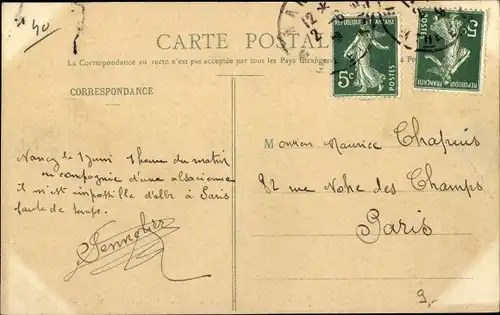 40
CARTE POSTALE
La Correspondance au recto n'est pas acceptée par tous les Pays Etrangers
CORRESPONDANCE
REPUBLIQUE FRANÇAISE
5c
POSTES
REPUBLIQUE FRANÇAISE
5c
POSTES
Nancy le 1 Juin 1 heure du matin
en compagnie d'une alsacienne
il m'est impossible d'aller à Paris
faute de temps.
Monsieur Maurice Chapuis
82 rue Notre des Champs
Paris
9.-